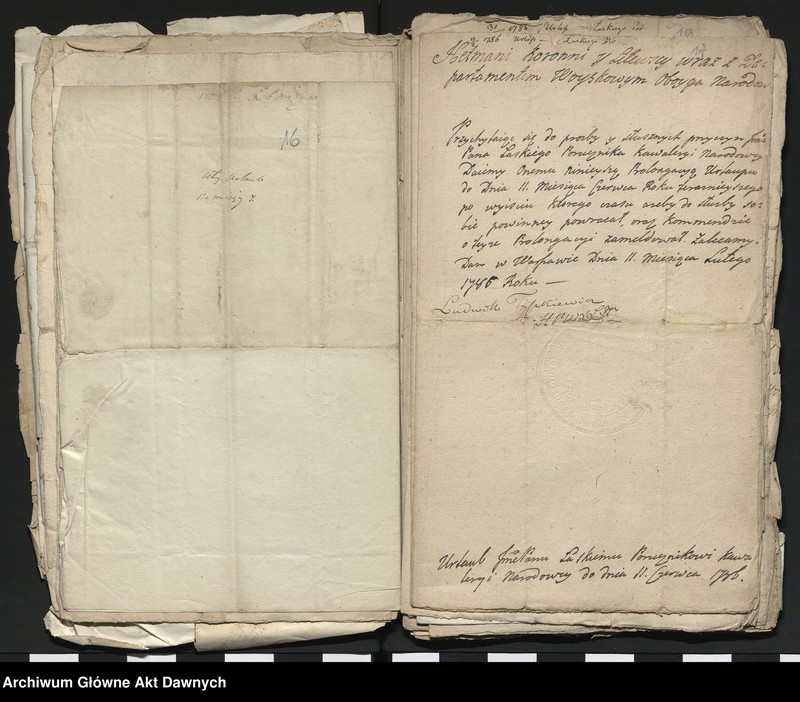 16
1786 Urlop Laskiego Por
1786 Urlop Laskiego Por
Hetmani Koronni y Litewscy wraz z De-
partamentem Woyskowym Oboyga Narodow
Przychylaiąc się do prozby y słusznych przyczyn Jmć
Pana Laskiego Porucznika Kawaleryi Narodowey
Daiemy Onemu ninieyszą Prolongacyą Urlaupu
do Dnia 11. Miesiąca Czerwca Roku teraznieyszego
po wyisciu ktorego czasu azeby do słuzby so-
bie powinney powracał, oraz Kommendzie
o teyze Prolongacyi zameldował zalecamy.
Dan w Warszawie Dnia 11. Miesiąca Lutego
1786 Roku —
Ludwik Tyszkiewicz
Urlaub JmćPanu Laskiemu Porucznikowi Kawa
leryi Narodowey do dnia 11. Czerwca 1786.
Archiwum Główne Akt Dawnych